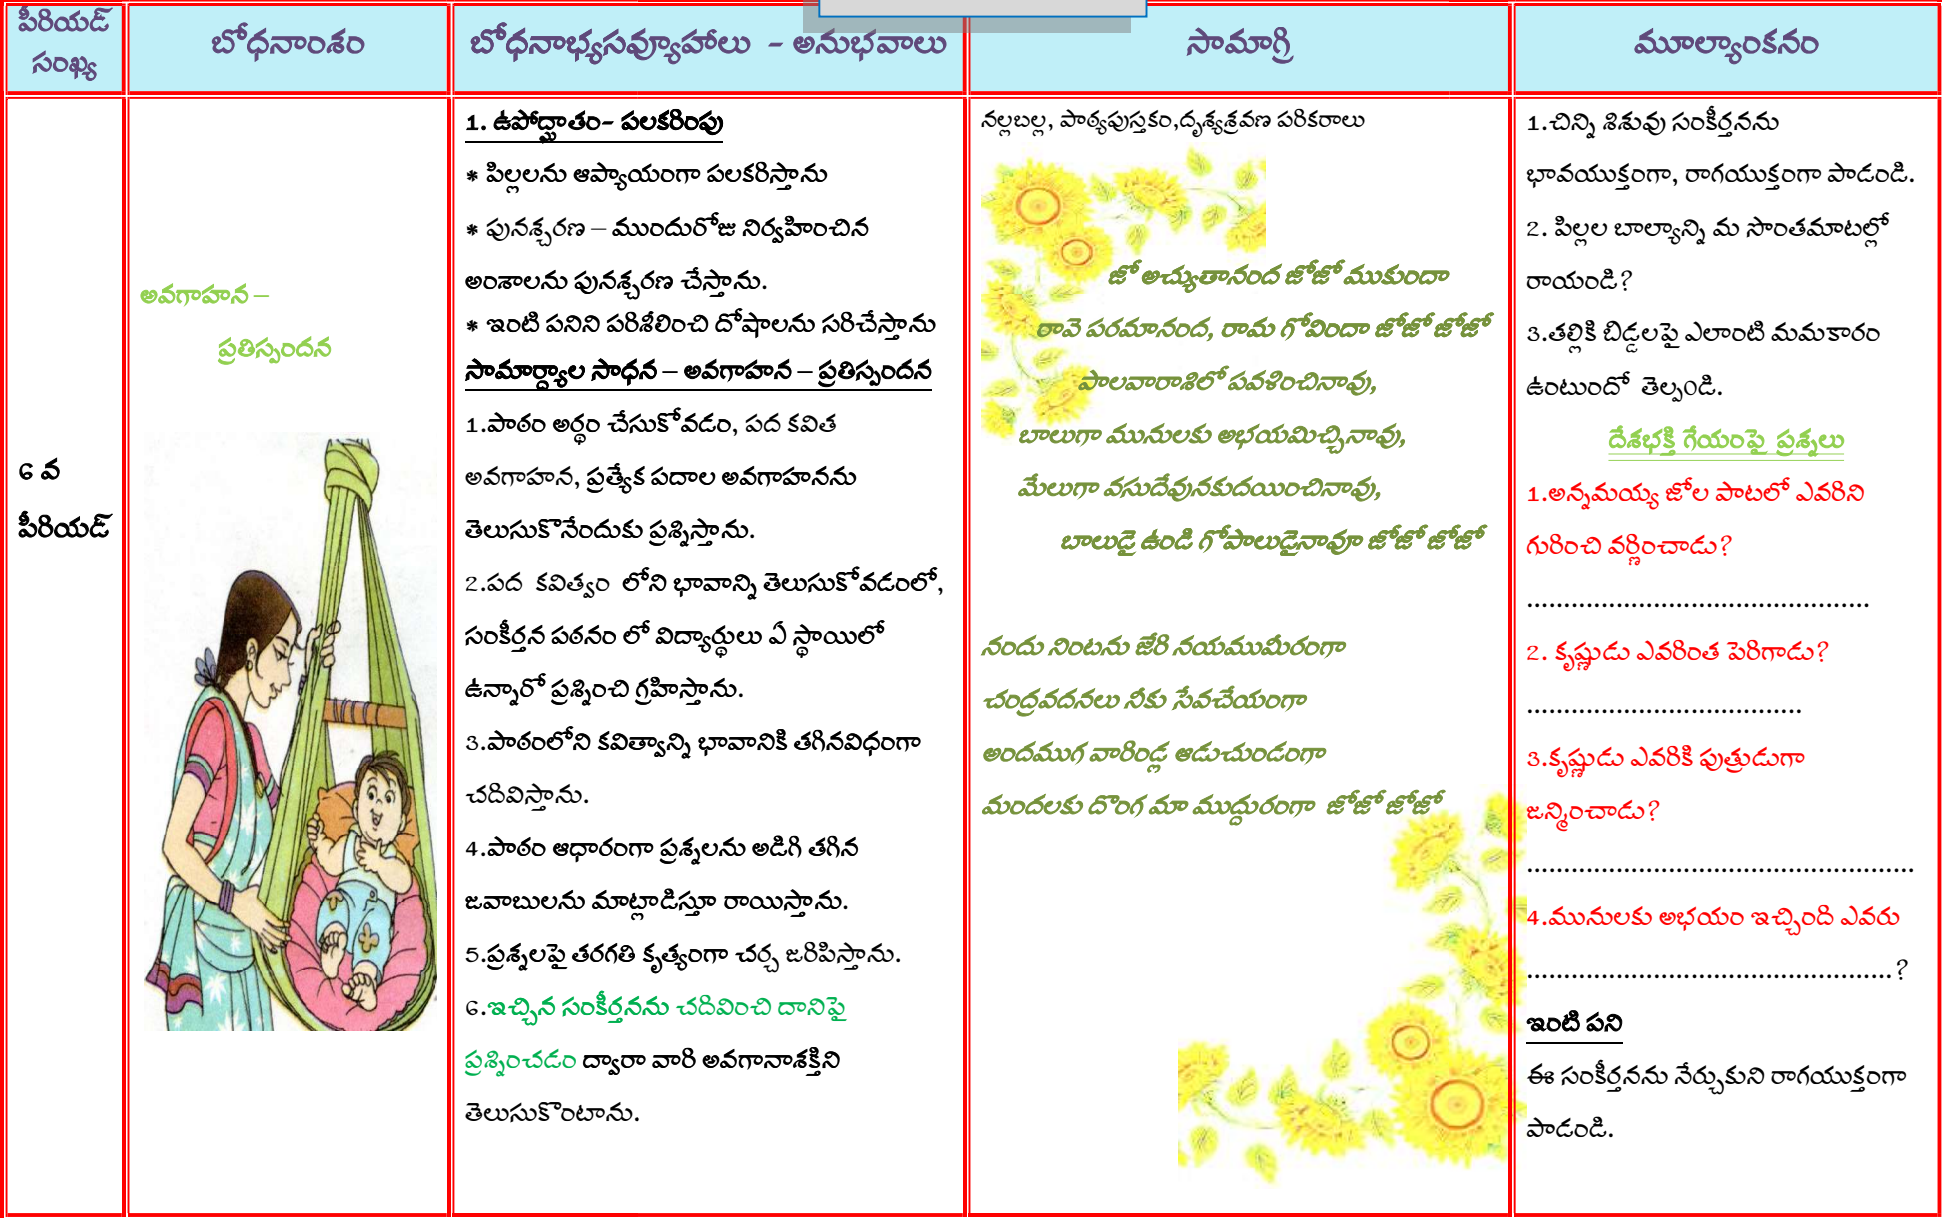 పీరియడ్
సంఖ్య
బోధనాంశం
బోధనాభ్యసవ్యూహాలు - అనుభవాలు
సామాగ్రి
మూల్యాంకనం
6 వ
పీరియడ్
అవగాహన –
ప్రతిస్పందన
1. ఉపోద్ఘాతం- పలకరింపు
* పిల్లలను ఆప్యాయంగా పలకరిస్తాను
* పునశ్చరణ – ముందురోజు నిర్వహించిన
అంశాలను పునశ్చరణ చేస్తాను.
* ఇంటి పనిని పరిశీలించి దోషాలను సరిచేస్తాను
సామార్థ్యాల సాధన – అవగాహన – ప్రతిస్పందన
1.పాఠం అర్థం చేసుకోవడం, పద కవిత
అవగాహన, ప్రత్యేక పదాల అవగాహనను
తెలుసుకొనేందుకు ప్రశ్నిస్తాను.
2.పద కవిత్వం లోని భావాన్ని తెలుసుకోవడంలో,
సంకీర్తన పఠనం లో విద్యార్థులు ఏ స్థాయిలో
ఉన్నారో ప్రశ్నించి గ్రహిస్తాను.
3.పాఠంలోని కవిత్వాన్ని భావానికి తగినవిధంగా
చదివిస్తాను.
4.పాఠం ఆధారంగా ప్రశ్నలను అడిగి తగిన
జవాబులను మాట్లాడిస్తూ రాయిస్తాను.
5.ప్రశ్నలపై తరగతి కృత్యంగా చర్చ జరిపిస్తాను.
6.ఇచ్చిన సంకీర్తనను చదివించి దానిపై
ప్రశ్నించడం ద్వారా వారి అవగానాశక్తిని
తెలుసుకొంటాను.
నల్లబల్ల, పాఠ్యపుస్తకం,దృశ్యశ్రవణ పరికరాలు
జో అచ్యుతానంద జోజో ముకుందా
రావె పరమానంద, రామ గోవిందా జోజో జోజో
పాలవారాశిలో పవళించినావు,
బాలుగా మునులకు అభయమిచ్చినావు,
మేలుగా వసుదేవునకుదయించినావు,
బాలుడై ఉండి గోపాలుడైనావూ జోజో జోజో
నందు నింటను జేరి నయముమీరంగా
చంద్రవదనలు నీకు సేవచేయంగా
అందముగ వారిండ్ల ఆడుచుండంగా
మందలకు దొంగ మా ముద్దురంగా జోజో జోజో
1.చిన్ని శిశువు సంకీర్తనను
భావయుక్తంగా, రాగయుక్తంగా పాడండి.
2. పిల్లల బాల్యాన్ని మ సొంతమాటల్లో
రాయండి?
3.తల్లికి బిడ్డలపై ఎలాంటి మమకారం
ఉంటుందో తెల్పండి.
దేశభక్తి గేయంపై ప్రశ్నలు
1.అన్నమయ్య జోల పాటలో ఎవరిని
గురించి వర్ణించాడు?
..............................................
2. కృష్ణుడు ఎవరింత పెరిగాడు?
.....................................
3.కృష్ణుడు ఎవరికి పుత్రుడుగా
జన్మించాడు?
....................................................
4.మునులకు అభయం ఇచ్చింది ఎవరు
.................................................?
ఇంటి పని
ఈ సంకీర్తనను నేర్చుకుని రాగయుక్తంగా
పాడండి.